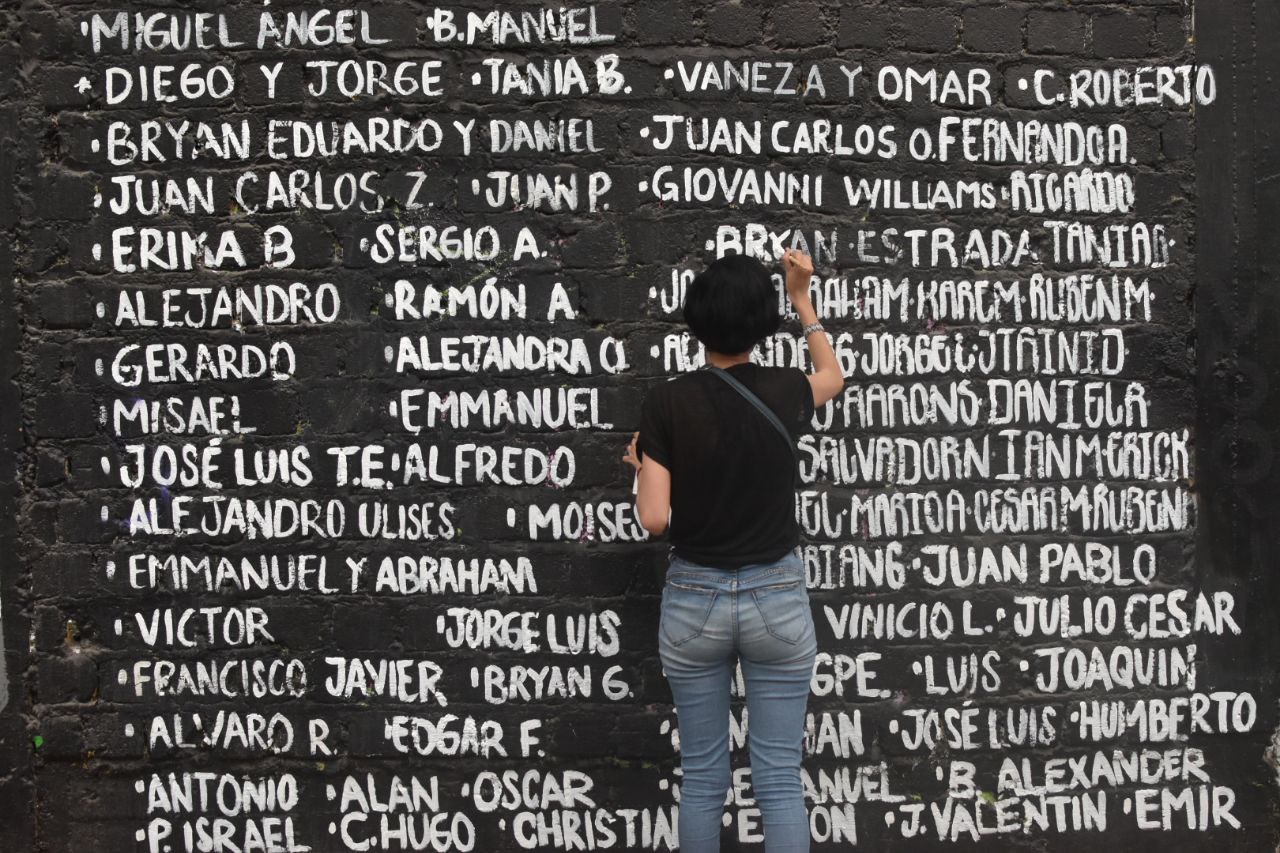 ·MIGUEL ÁNGEL ·B.MANUEL
·DIEGO Y JORGE ·TANIA B. ·VANEZA Y OMAR ·C.ROBERTO
·BRYAN EDUARDO Y DANIEL ·JUAN CARLOS O.FERNANDO A.
·JUAN CARLOS Z. ·JUAN P. ·GIOVANNI WILLIAMS·RICARDO
·ERIKA B ·SERGIO A. ·BRYAN·ESTRADA TANIA
·ALEJANDRO ·RAMÓN A. ABRAHAM·KAREM·RUBEN M·
·GERARDO ·ALEJANDRA O
·MISAEL ·EMMANUEL AARON S·DANIELA
·JOSÉ LUIS T.E.·ALFREDO SALVADOR N IAN M·ERICK
·ALEJANDRO ULISES ·MOISES MARIO A·CESAR M·RUBEN
·EMMANUEL Y ABRAHAM ·JUAN PABLO
·VICTOR ·JORGE LUIS VINICIO L.·JULIO CESAR
·FRANCISCO JAVIER ·BRYAN G. GPE. ·LUIS ·JOAQUIN
·ALVARO R. ·EDGAR F. ·JOSÉ LUIS ·HUMBERTO
·ANTONIO ·ALAN ·OSCAR ·B. ALEXANDER
·P. ISRAEL ·C.HUGO ·CHRISTIAN ·J.VALENTIN ·EMIR